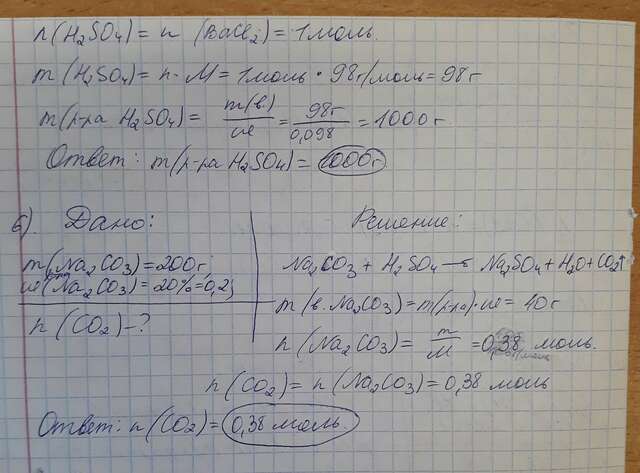 n(H₂SO₄) = n (BaCl₂) = 1 моль.
m (H₂SO₄) = n · M = 1 моль · 98 г/моль = 98 г
m(р-ра H₂SO₄) = m(в.)/ω = 98г/0,098 = 1000 г.
Ответ: m(р-ра H₂SO₄) = 1000г
6) Дано: Решение:
m(Na₂CO₃) = 200г, Na₂CO₃ + H₂SO₄ → Na₂SO₄ + H₂O + CO₂↑
ω(Na₂CO₃) = 20% = 0,2; m(в. Na₂CO₃) = m(р-ра) · ω = 40 г
n (CO₂) - ? n(Na₂CO₃) = m/M = 0,38 моль.
n(CO₂) = n(Na₂CO₃) = 0,38 моль
Ответ: n(CO₂) = 0,38 моль.